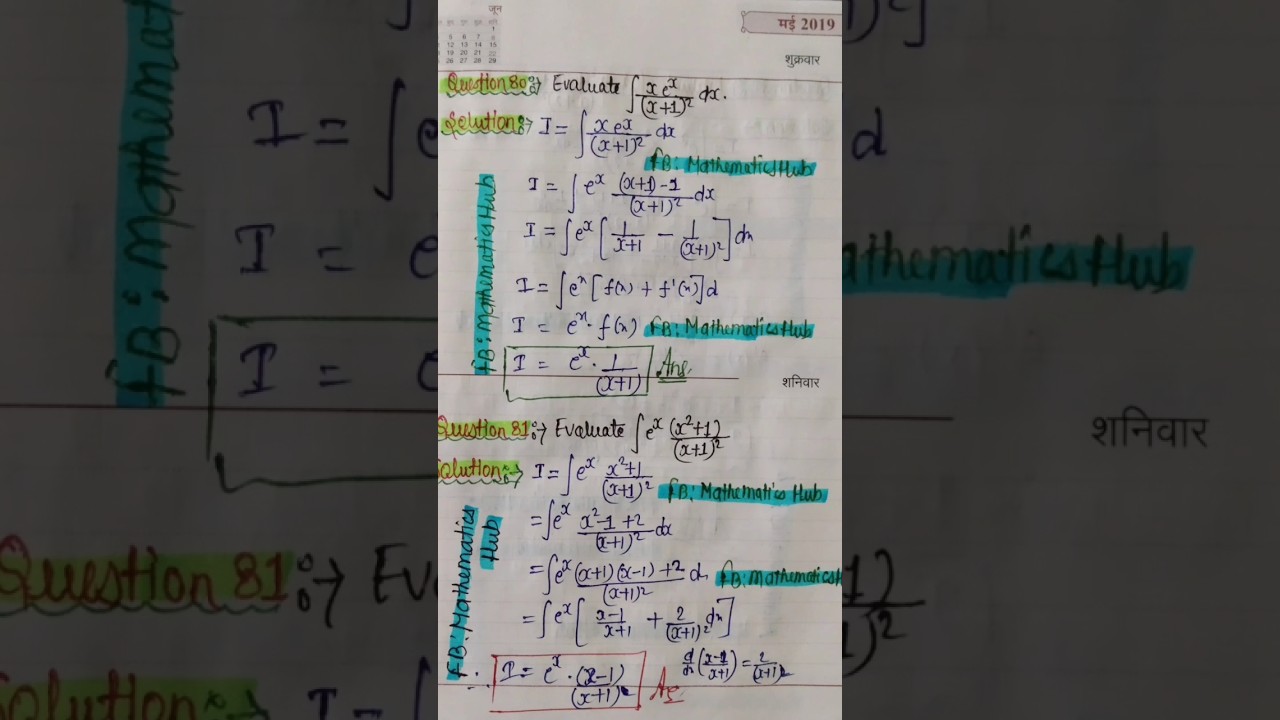 जून
मई 2019
1
5 6 7 8
12 13 14 15
19 20 21 22
26 27 28 29
शुक्रवार
Question 80:→ Evaluate ∫ x e^x/(x+1)^2 dx.
Solution:→ I = ∫ x e^x/(x+1)^2 dx
FB: Mathematics Hub
I = ∫ e^x (x+1)-1/(x+1)^2 dx
I = ∫ e^x [1/(x+1) - 1/(x+1)^2] dx
I = ∫ e^x [f(x) + f'(x)] d
I = e^x · f(x) FB: Mathematics Hub
I = e^x · 1/(x+1) Ans.
FB: Mathematics Hub
शनिवार
Question 81:→ Evaluate ∫ e^x (x^2+1)/(x+1)^2
Solution:→ I = ∫ e^x x^2+1/(x+1)^2
FB: Mathematics Hub
= ∫ e^x x^2-1+2/(x+1)^2 dx
= ∫ e^x (x+1)(x-1)+2/(x+1)^2 dx FB: Mathematics H
= ∫ e^x [x-1/x+1 + 2/(x+1)^2 dx]
d/dx (x-1/x+1) = 2/(x+1)^2
∴ I = e^x · (x-1)/(x+1) Ans
FB: Mathematics Hub